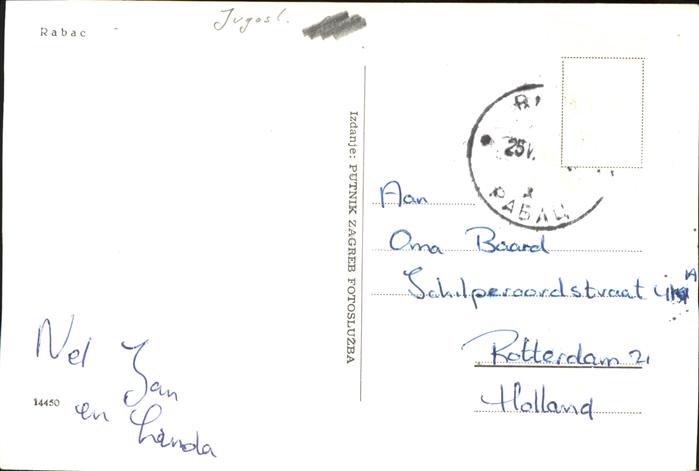 Jugosl.
Rabac
Izdanje: PUTNIK ZAGREB FOTOSLUŽBA
25 V.
РАБАЦ
Aan
Oma Baard
Schilperoordstraat
Rotterdam 21
Holland
Nel Jan
en Linda
14450